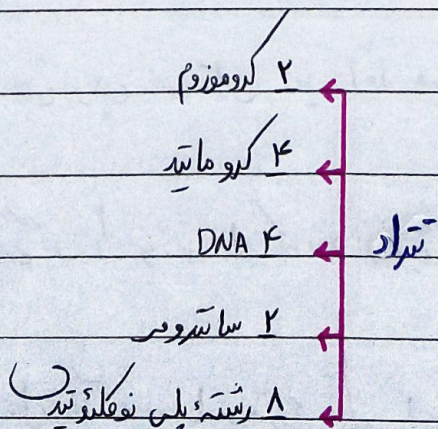 ۲ کروموزوم
۴ کروماتید
تتراد
۴ DNA
۲ سانترومر
۸ رشتهٔ پلی نوکلئوتیدی